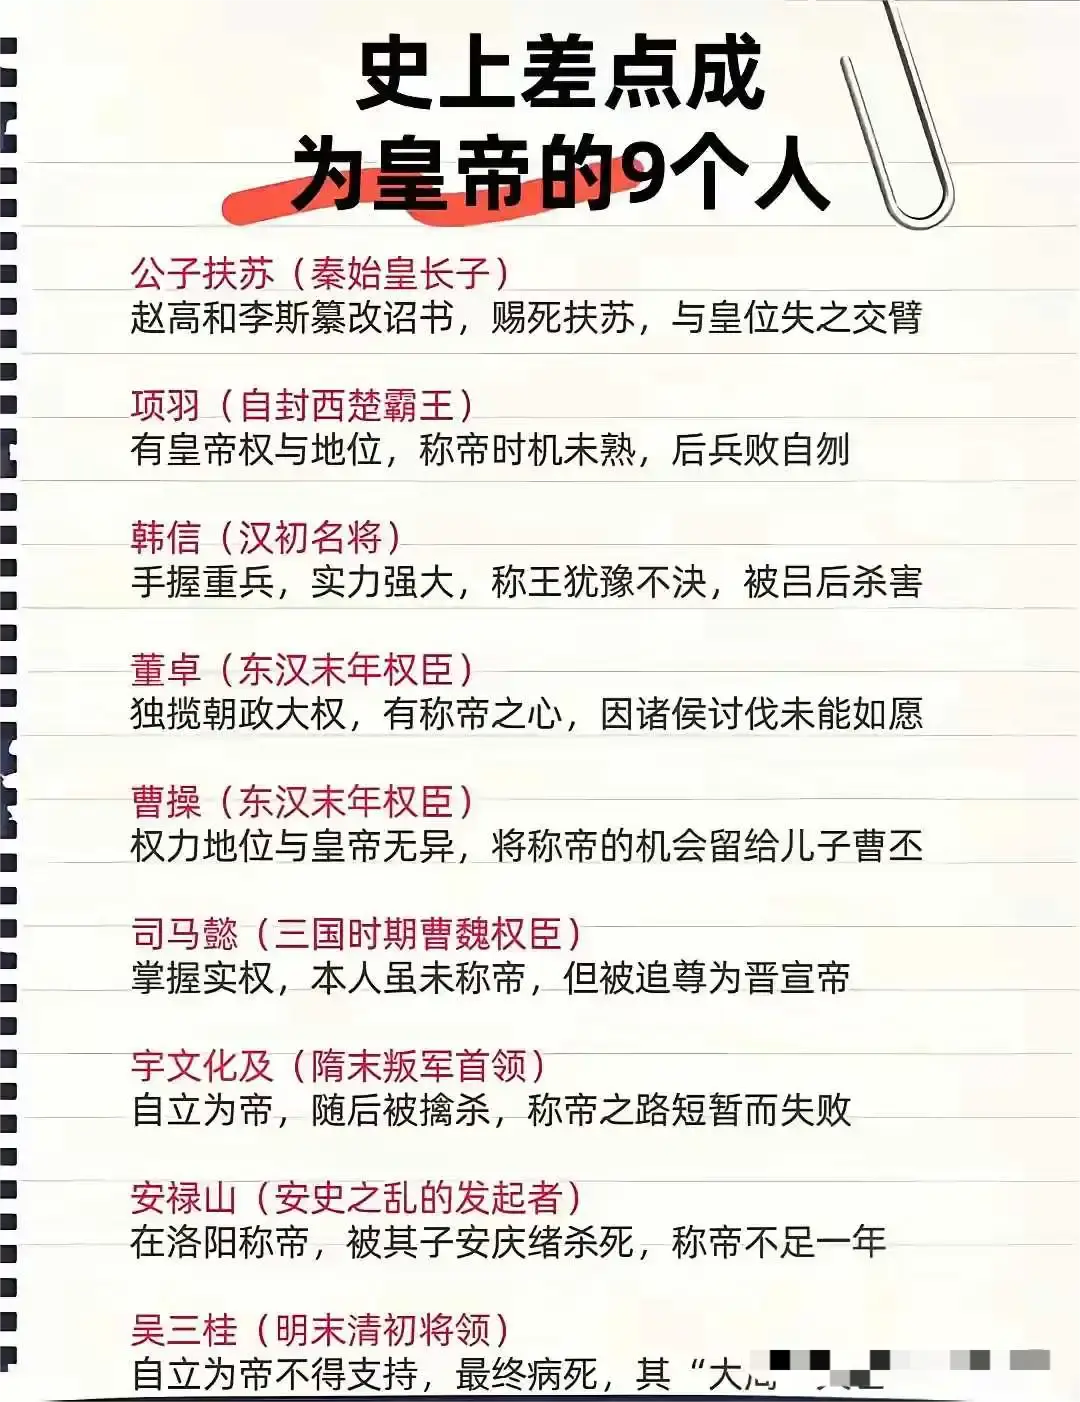 史上差点成
为皇帝的9个人
公子扶苏（秦始皇长子）
赵高和李斯纂改诏书，赐死扶苏，与皇位失之交臂
项羽（自封西楚霸王）
有皇帝权与地位，称帝时机未熟，后兵败自刎
韩信（汉初名将）
手握重兵，实力强大，称王犹豫不決，被吕后杀害
董卓（东汉末年权臣）
独揽朝政大权，有称帝之心，因诸侯讨伐未能如愿
曹操（东汉末年权臣）
权力地位与皇帝无异，将称帝的机会留给儿子曹丕
司马懿（三国时期曹魏权臣）
掌握实权，本人虽未称帝，但被追尊为晋宣帝
宇文化及（隋末叛军首领）
自立为帝，随后被擒杀，称帝之路短暂而失败
安禄山（安史之乱的发起者）
在洛阳称帝，被其子安庆绪杀死，称帝不足一年
吴三桂（明末清初将领）
自立为帝不得支持，最终病死，其“大周